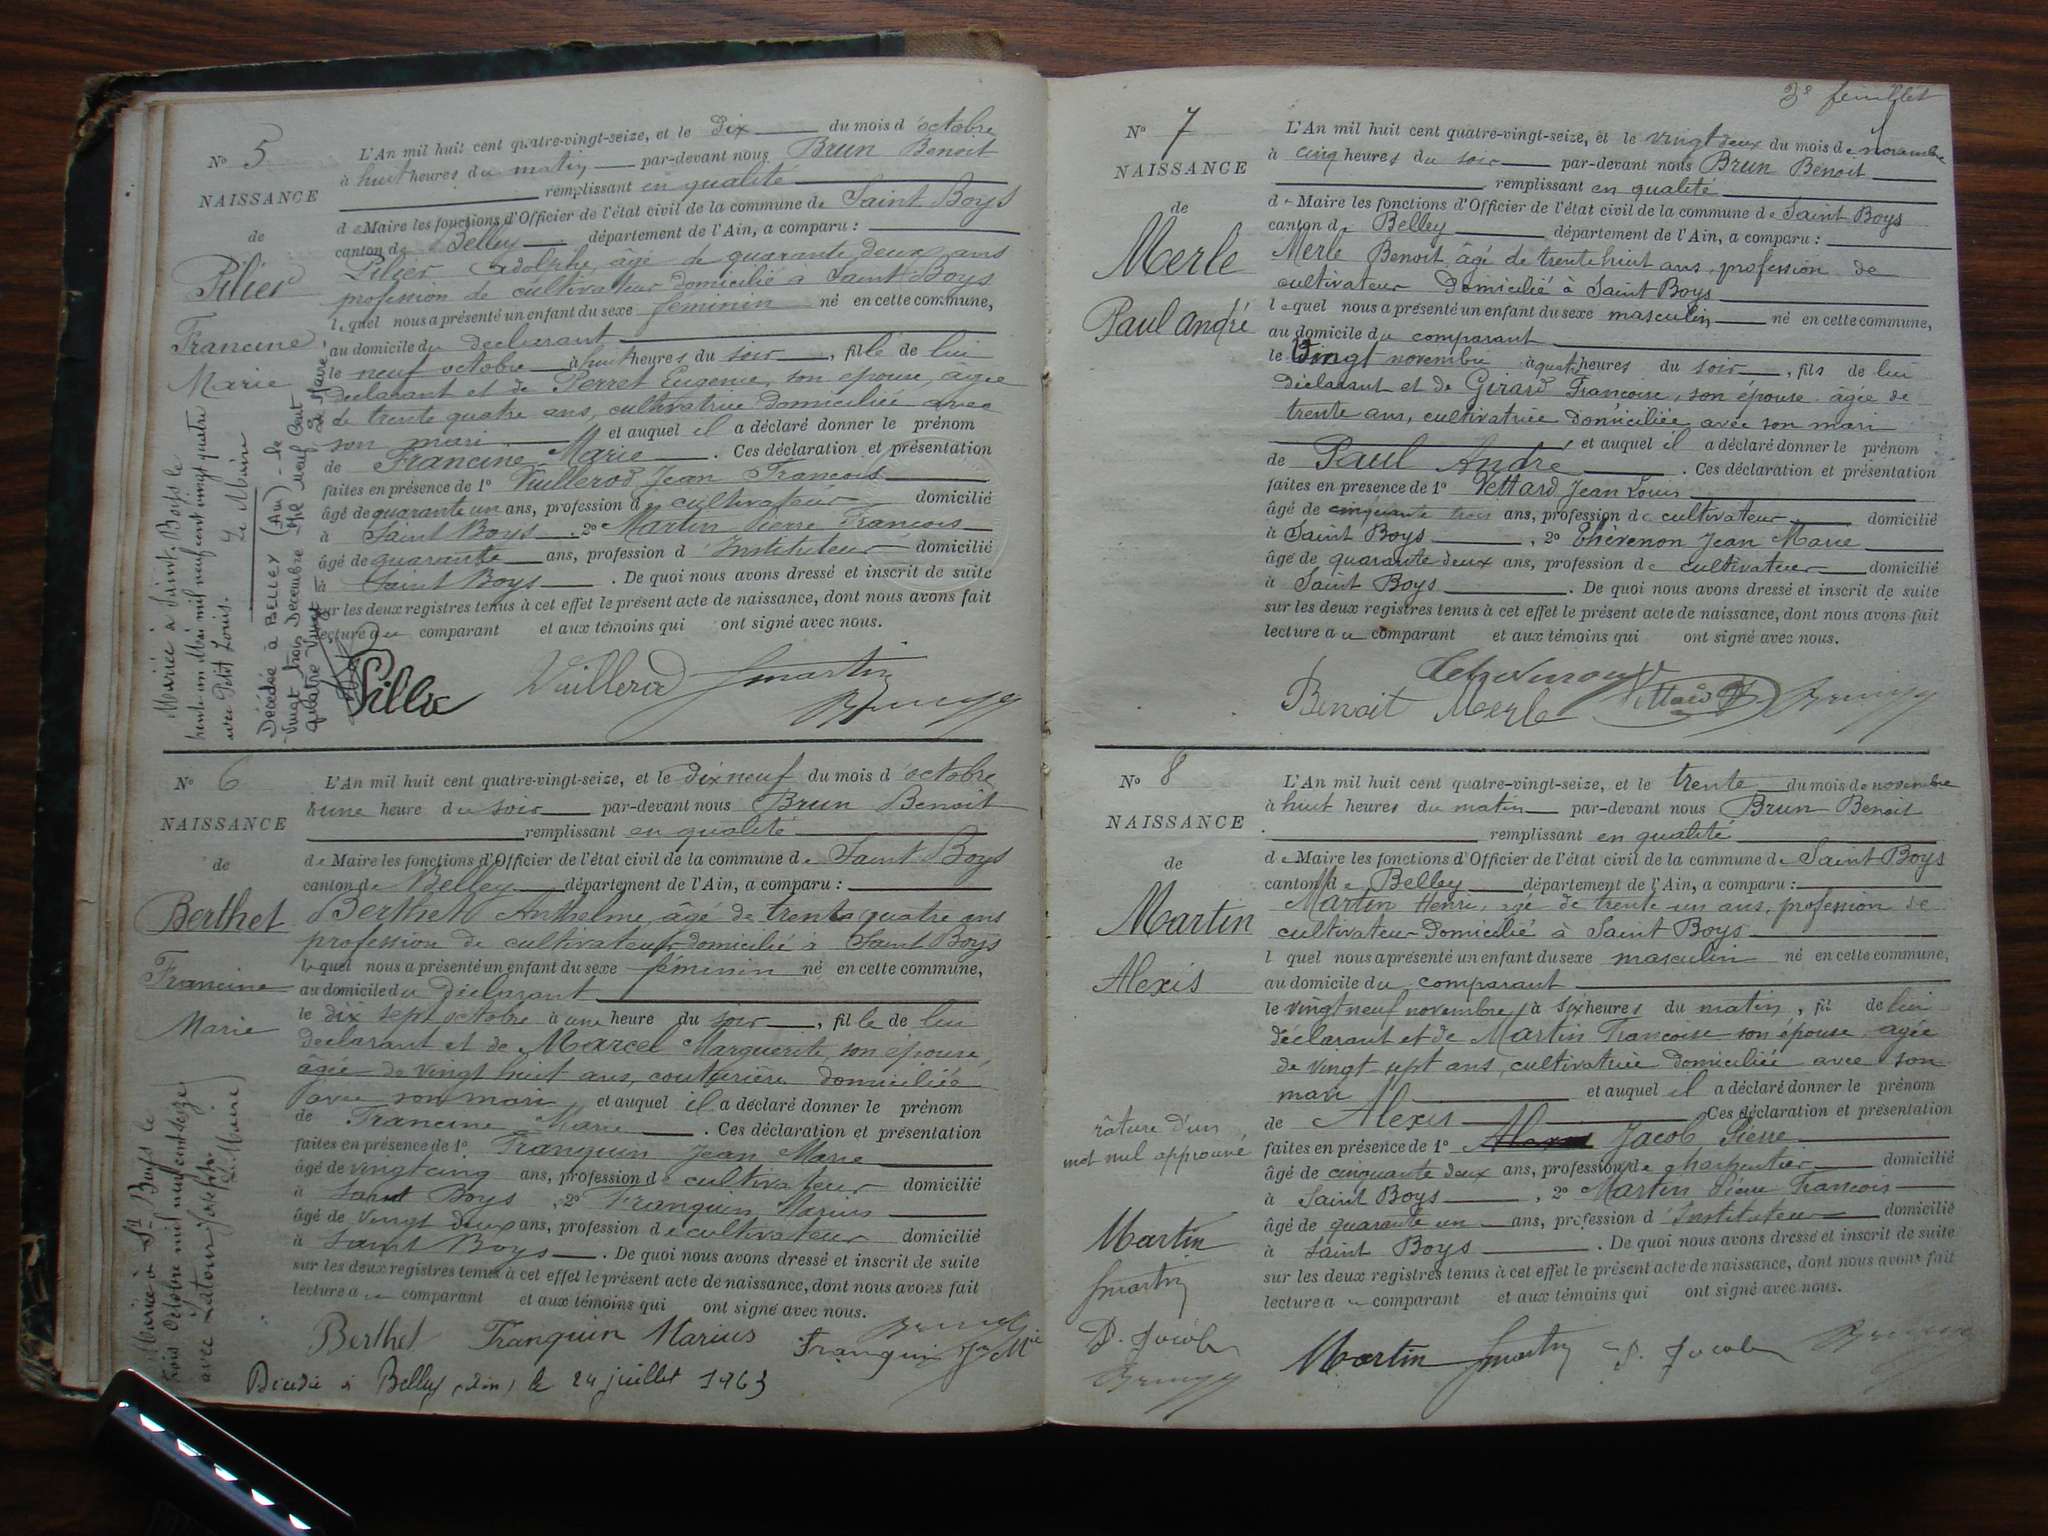 N° 5
NAISSANCE
de
Pilier
Francine
Marie
Mariée à Saint Boys le
trente un Mai mil neuf cent vingt quatre
avec Petit Louis.
Le Maire
Décédée à BELLEY (Ain) - le
- vingt trois Décembre mil neuf cent
quatre vingt
Le Maire,
L'An mil huit cent quatre-vingt-seize, et le dix du mois d'octobre
à huit heures du matin par-devant nous Brun Benoit
remplissant en qualité
de Maire les fonctions d'Officier de l'état civil de la commune de Saint Boys
canton de Belley département de l'Ain, a comparu :
Pilier Adolphe, âgé de quarante deux ans
profession de cultivateur domicilié à Saint Boys
lequel nous a présenté un enfant du sexe féminin né en cette commune,
au domicile du déclarant
le neuf octobre à huit heures du soir, fille de lui
déclarant et de Perret Eugénie, son épouse, agée
de trente quatre ans, cultivatrice domiciliée avec
son mari et auquel il a déclaré donner le prénom
de Francine Marie. Ces déclaration et présentation
faites en présence de 1° Vuillerod Jean François
âgé de quarante un ans, profession d cultivateur domicilié
à Saint Boys. 2° Martin Pierre François
âgé de quarante ans, profession d'Instituteur domicilié
à Saint Boys. De quoi nous avons dressé et inscrit de suite
sur les deux registres tenus à cet effet le présent acte de naissance, dont nous avons fait
lecture au comparant et aux témoins qui ont signé avec nous.
Vuillerod Jmartin
N° 6
NAISSANCE
de
Berthet
Francine
Marie
Mariée à St Boys le
trois Octobre mil neuf cent seize
avec Latour Joseph.
Le Maire,
L'An mil huit cent quatre-vingt-seize, et le dix neuf du mois d'octobre
à une heure du soir par-devant nous Brun Benoit
remplissant en qualité
de Maire les fonctions d'Officier de l'état civil de la commune de Saint Boys
canton de Belley département de l'Ain, a comparu :
Berthet Anthelme, âgé de trente quatre ans
profession de cultivateur domicilié à Saint Boys
lequel nous a présenté un enfant du sexe féminin né en cette commune,
au domicile du déclarant
le dix sept octobre à une heure du soir, fille de lui
déclarant et de Marcel Marguerite, son épouse,
âgée de vingt huit ans, couturière domiciliée
avec son mari et auquel il a déclaré donner le prénom
de Francine Marie. Ces déclaration et présentation
faites en présence de 1° Franquin Jean Marie
âgé de vingt cinq ans, profession de cultivateur domicilié
à Saint Boys, 2° Franquin Marius
âgé de vingt deux ans, profession de cultivateur domicilié
à Saint Boys. De quoi nous avons dressé et inscrit de suite
sur les deux registres tenus à cet effet le présent acte de naissance, dont nous avons fait
lecture au comparant et aux témoins qui ont signé avec nous.
Berthet Franquin Marius Franquin Jn Mie
Décédée à Belley (Ain) le 24 juillet 1963
3e feuillet
N° 7
NAISSANCE
de
Merle
Paul André
L'An mil huit cent quatre-vingt-seize, et le vingt deux du mois de novembre
à cinq heures du soir par-devant nous Brun Benoit
remplissant en qualité
de Maire les fonctions d'Officier de l'état civil de la commune de Saint Boys
canton de Belley département de l'Ain, a comparu :
Merle Benoit âgé de trente huit ans, profession de
cultivateur domicilié à Saint Boys
lequel nous a présenté un enfant du sexe masculin né en cette commune,
au domicile du comparant
le Vingt novembre à quatre heures du soir, fils de lui
déclarant et de Girard Françoise, son épouse âgée de
trente ans, cultivatrice domiciliée avec son mari
et auquel il a déclaré donner le prénom
de Paul André. Ces déclaration et présentation
faites en présence de 1° Vettard Jean Louis
âgé de cinquante trois ans, profession de cultivateur domicilié
à Saint Boys, 2° Thévenon Jean Marie
âgé de quarante deux ans, profession de cultivateur domicilié
à Saint Boys. De quoi nous avons dressé et inscrit de suite
sur les deux registres tenus à cet effet le présent acte de naissance, dont nous avons fait
lecture au comparant et aux témoins qui ont signé avec nous.
Benoit Merle Vettard
N° 8
NAISSANCE
de
Martin
Alexis
râture d'un
mot nul approuvé
Martin
Jmartin
P. Jacob
L'An mil huit cent quatre-vingt-seize, et le trente du mois de novembre
à huit heures du matin par-devant nous Brun Benoit
remplissant en qualité
de Maire les fonctions d'Officier de l'état civil de la commune de Saint Boys
canton de Belley département de l'Ain, a comparu :
Martin Henri, agé de trente un ans, profession de
cultivateur domicilié à Saint Boys
l quel nous a présenté un enfant du sexe masculin né en cette commune,
au domicile du comparant
le vingt neuf novembre à six heures du matin, fil de lui
déclarant et de Martin Françoise son épouse agée
de vingt sept ans, cultivatrice domiciliée avec son
mari et auquel il a déclaré donner le prénom
de Alexis Ces déclaration et présentation
faites en présence de 1° Alexis Jacob Pierre
âgé de cinquante deux ans, profession de charpentier domicilié
à Saint Boys, 2° Martin Pierre François
âgé de quarante un ans, profession d'Instituteur domicilié
à Saint Boys. De quoi nous avons dressé et inscrit de suite
sur les deux registres tenus à cet effet le présent acte de naissance, dont nous avons fait
lecture au comparant et aux témoins qui ont signé avec nous.
Martin Jmartin P. Jacob